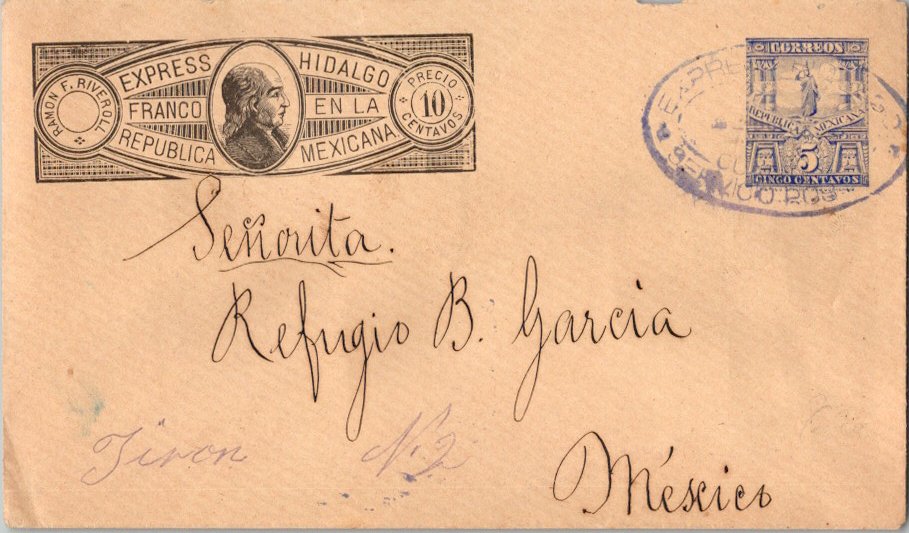 RAMON F. RIVEROLL
EXPRESS HIDALGO
FRANCO EN LA
REPUBLICA MEXICANA
PRECIO
10
CENTAVOS
CORREOS
REPUBLICA MEXICANA
5
CINCO CENTAVOS
Señorita.
Refugio B. Garcia
Tiron No. 2
México